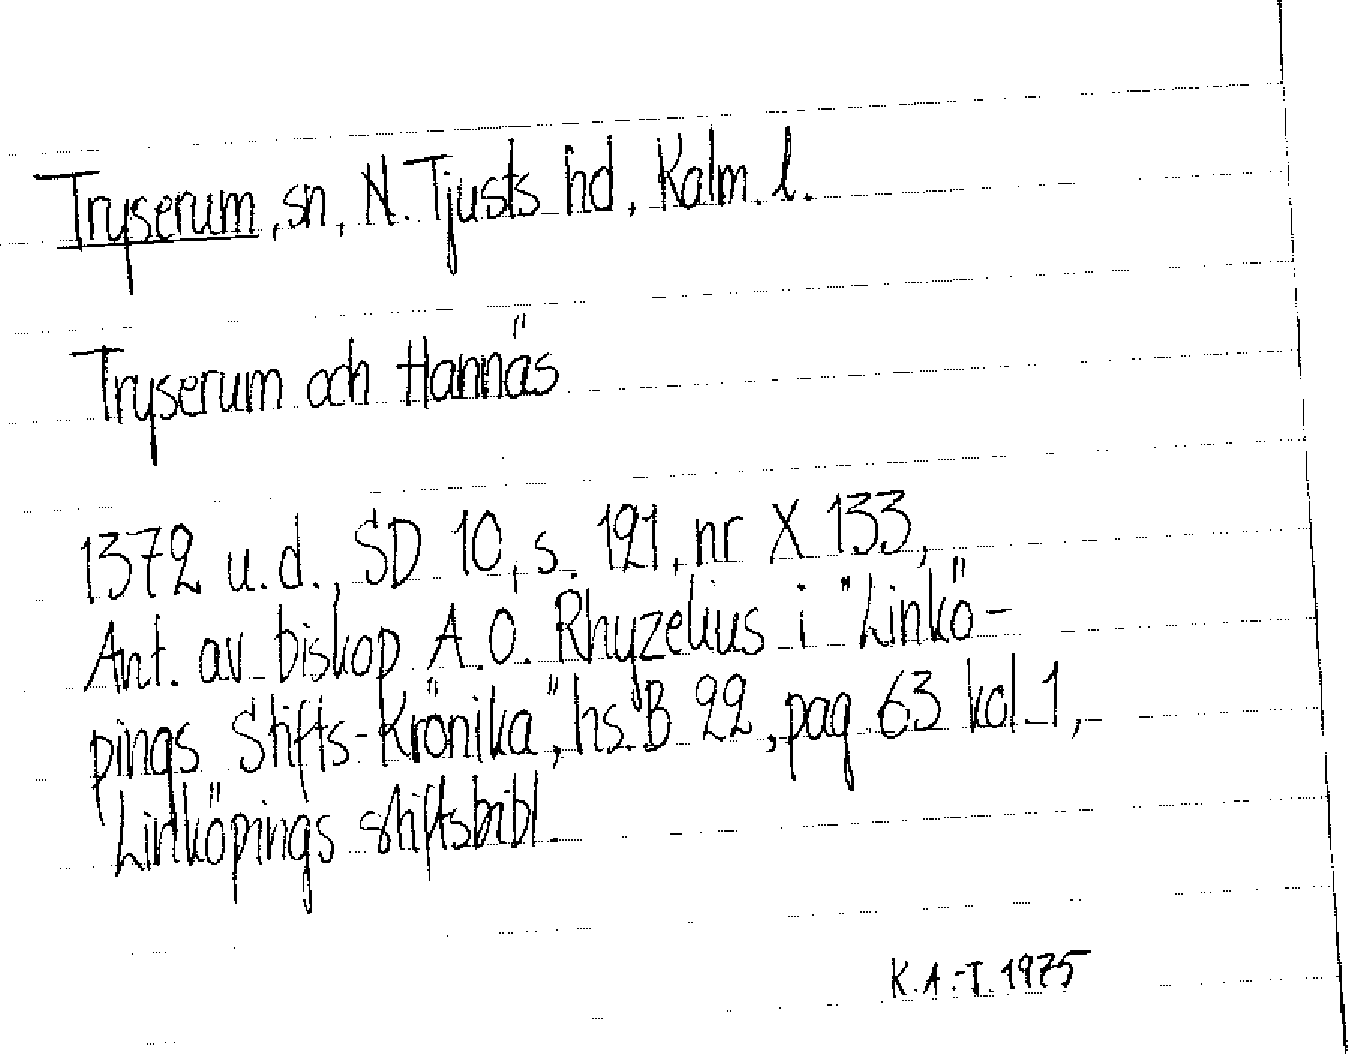 Tryserum, sn, N. Tjusts hd, Kalm. l.
Tryserum och Hannäs
1372 u.d., SD 10, s. 121, nr X 133,
Ant. av biskop A.O. Rhyzelius i "Linkö-
pings Stifts-Krönika", hs. B 22, pag 63 kol 1,
Linköpings stiftsbibl
K.A.-T. 1975